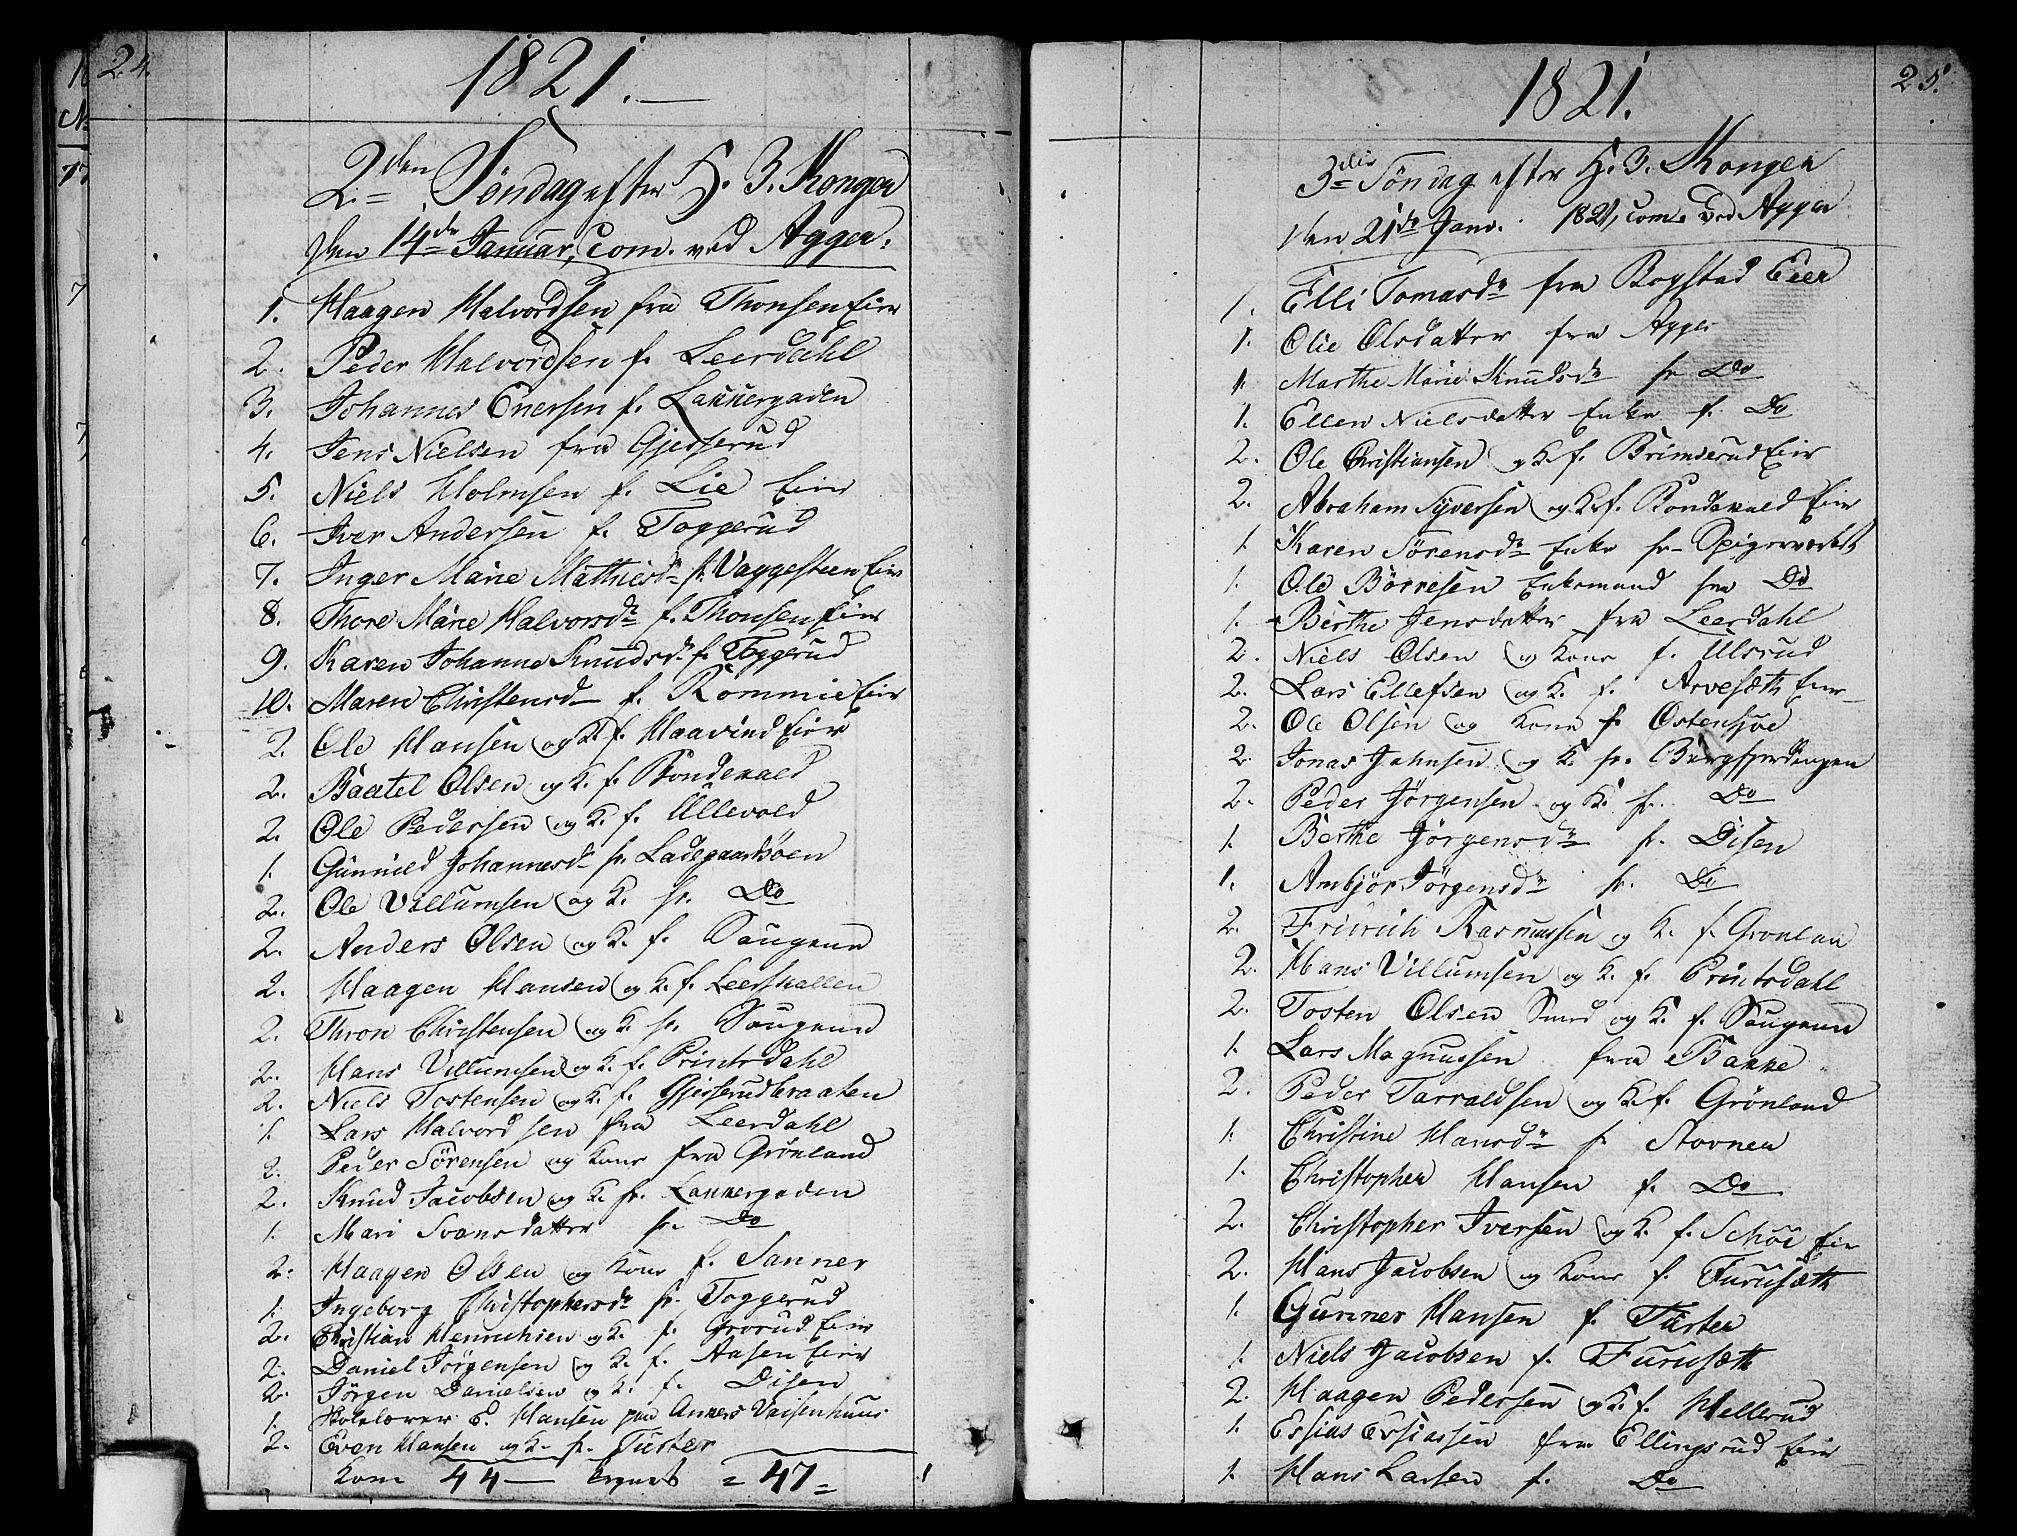 24.
1821.
2den Søndag efter H. 3. Konger
den 14de Januar, Com. ved Agger.
1. Haagen Halvordsen fra Thonsen Eier
2. Peder Halvordsen f. Leerdahl
3. Johannes Enersen f. Lakkergaden
4. Jens Nielsen fra Gjesserud
5. Niels Holmsen f. Lie Eier
6. Iver Andersen f. Toggerud
7. Inger Marie Mathiesdr fr. Vaggesteen Eier
8. Thore Marie Halvorsdr f. Thonsen Eier
9. Karen Johanne Knudsdr f. Toggerud
10. Maren Christensd f. Rommie Eier
2. Ole Hansen og K. f. Haavind Eier
2. Baatel Olsen og K. f. Bondekald
2. Ole Pedersen og K. f. Ullevold
1. Gunnild Johannesd fr. Ladegaardsøen
2. Ole Villumsen og K. fr. Do
2. Anders Olsen og K. f. Saugene
2. Haagen Hansen og K. f. Leerskallen
2. Thron Christensen og K. fr. Saugene
2. Hans Villumsen og K. f. Printsdahl
2. Niels Tostensen og K. f. Gjesserudbraaten
1. Lars Halvordsen fra Leerdahl
2. Peder Sørensen og Kone fra Grønland
2. Knud Jacobsen og K. fr. Lakkergaden
1. Mari Svensdatter fr. Do
2. Haagen Olsen og Kone f. Sanner
1. Ingeborg Christophersdr fr. Toggerud
2. Christian Henrichsen og K. f. Grorud Eier
2. Daniel Jørgensen og K. f. Aasen Eier
2. Jørgen Danielsen og K. f. Disen
1. Skolelærer E. Hansen paa Ankers Vaisenhuus
2. Even Hansen og K. fr. Turter
Kom 44 — = 47 =
25.
1821.
3die Søndag efter H. 3. Konger
den 21de Janv. 1821, Com. ved Agger
1. Elli Tomasdr fra Bogstad Eier
1. Olie Olsdatter fra Agger
1. Marthe Marie Knudsdr fr Do
1. Ellen Nielsdatter Enke f. Do
2. Ole Christiansen og K. f. Brinserud Eier
2. Abraham Syversen og K. f. Bondekald Eier
1. Karen Sørensdr Enke fr Spigerværket
1. Ole Børresen Enkemand fra Do
1. Berthe Jensdatter fra Leerdahl
2. Niels Olsen og Kone f. Ulsrud
2. Lars Ellefsen og K. f. Arvesæth Eier
2. Ole Olsen og Kone f. Østensjøe
2. Jonas Jahnsen og K. fr. Bergfjerdingen
2. Peder Jørgensen og K. fr. Do
1. Berthe Jørgensdr fr. Disen
1. Ambjør Jørgensdr fr. Do
2. Fridrich Rasmussen og K. f. Grønlan
2. Hans Villumsen og K. f. Printsdahl
2. Tosten Olsen Smed og K. f. Saugene
1. Lars Magnussen fra Bakke
2. Peder Tarraldsen og K. f. Grønland
1. Christine Hansdr f Stovner
1. Christopher Hansen f. Do
2. Christopher Iversen og K. f. Schøi Eier
2. Hans Jacobsen og Kone f. Furusæth
1. Gunner Hansen f. Turter
1. Niels Jacobsen f. Furusæth
2. Haagen Pedersen og K. f. Hellerud
1. Essias Essiassen fra Ellingsrud Eier
1. Hans Larsen f. Do